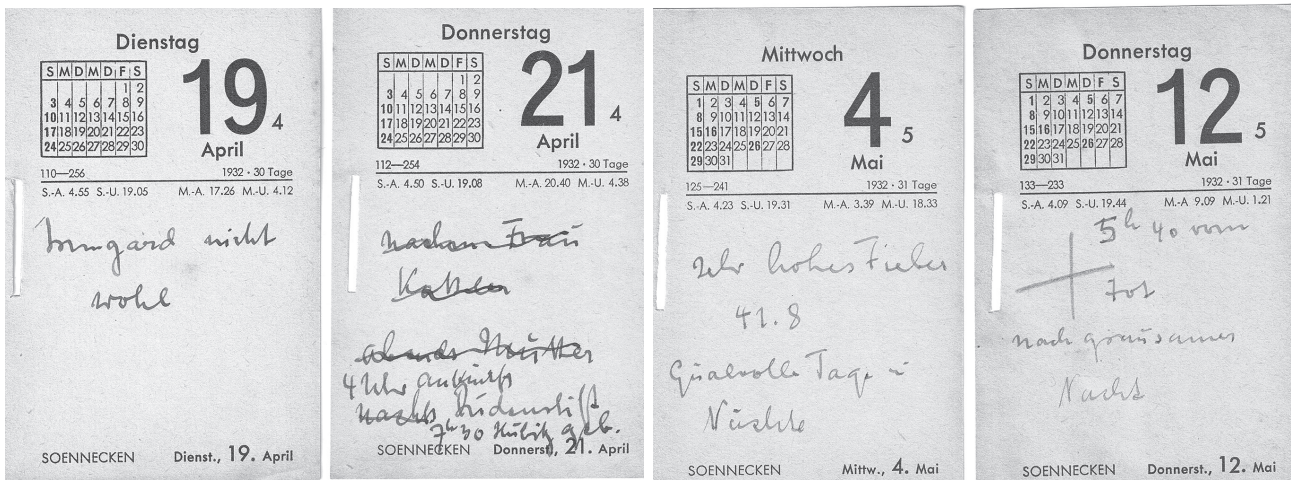 Dienstag
S M D M D F S
1 2
3 4 5 6 7 8 9
10 11 12 13 14 15 16
17 18 19 20 21 22 23
24 25 26 27 28 29 30
19 4
April
110—256 1932 · 30 Tage
S.-A. 4.55 S.-U. 19.05 M.-A. 17.26 M.-U. 4.12
Irmgard nicht
wohl
SOENNECKEN Dienst., 19. April
Donnerstag
S M D M D F S
1 2
3 4 5 6 7 8 9
10 11 12 13 14 15 16
17 18 19 20 21 22 23
24 25 26 27 28 29 30
21 4
April
112—254 1932 · 30 Tage
S.-A. 4.50 S.-U. 19.08 M.-A. 20.40 M.-U. 4.38
nachm Frau
abends Mutter
4 Uhr Ankunft
nachts
7h 30 geb.
SOENNECKEN Donnerst., 21. April
Mittwoch
S M D M D F S
1 2 3 4 5 6 7
8 9 10 11 12 13 14
15 16 17 18 19 20 21
22 23 24 25 26 27 28
29 30 31
4 5
Mai
125—241 1932 · 31 Tage
S.-A. 4.23 S.-U. 19.31 M.-A. 3.39 M.-U. 18.33
sehr hohes Fieber
41.8
Qualvolle Tage u
Nächte
SOENNECKEN Mittw., 4. Mai
Donnerstag
S M D M D F S
1 2 3 4 5 6 7
8 9 10 11 12 13 14
15 16 17 18 19 20 21
22 23 24 25 26 27 28
29 30 31
12 5
Mai
133—233 1932 · 31 Tage
S.-A. 4.09 S.-U. 19.44 M.-A 9.09 M.-U. 1.21
5h 40 vorm
Tot
nach grausamer
Nacht
SOENNECKEN Donnerst., 12. Mai